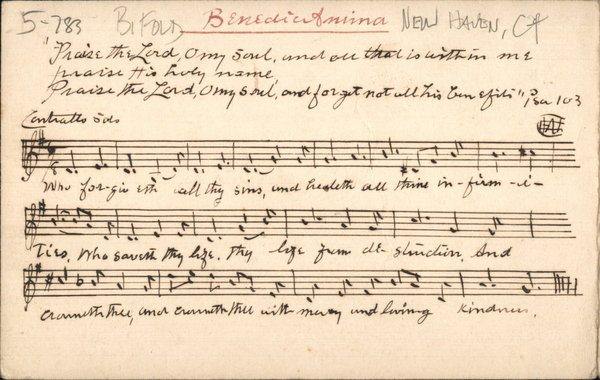 5-783 BiFold Benedic Anima New Haven, CT
"Praise the Lord, O my soul, and all that is within me
praise His holy name
Praise the Lord, O my soul, and forget not all his benefits", Psa 103
Contralto Solo
Who for-giv eth all thy sins, and healeth all thine in-firm-i-
Ties, Who saveth thy life, thy life from de-struction, And
crowneth thee, and crowneth thee with mercy and loving kindness.